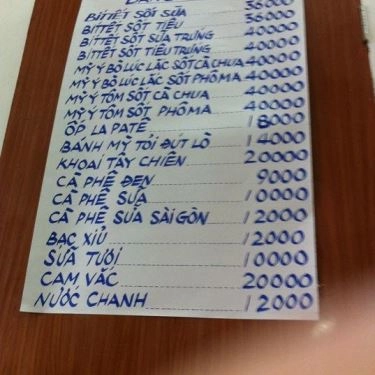 BÍTTẾT SỐT SỮA 36000
BÍTTẾT SỐT TIÊU 36000
BÍTTẾT SỐT SỮA TRỨNG 40000
BÍTTẾT SỐT TIÊU TRỨNG 40000
MỲ Ý BÒ LÚC LẮC SỐT CÀ CHUA 40000
MỲ Ý BÒ LÚC LẮC SỐT PHÔ MAI 40000
MỲ Ý TÔM SỐT CÀ CHUA 40000
MỲ Ý TÔM SỐT PHÔ MAI 40000
ỐP LA PATÊ 18000
BÁNH MỲ TỎI ĐÚT LÒ 14000
KHOAI TÂY CHIÊN 20000
CÀ PHÊ ĐEN 9000
CÀ PHÊ SỮA 10000
CÀ PHÊ SỮA SÀI GÒN 12000
BẠC XỈU 12000
SỮA TƯƠI 10000
CAM VẮC 20000
NƯỚC CHANH 12000